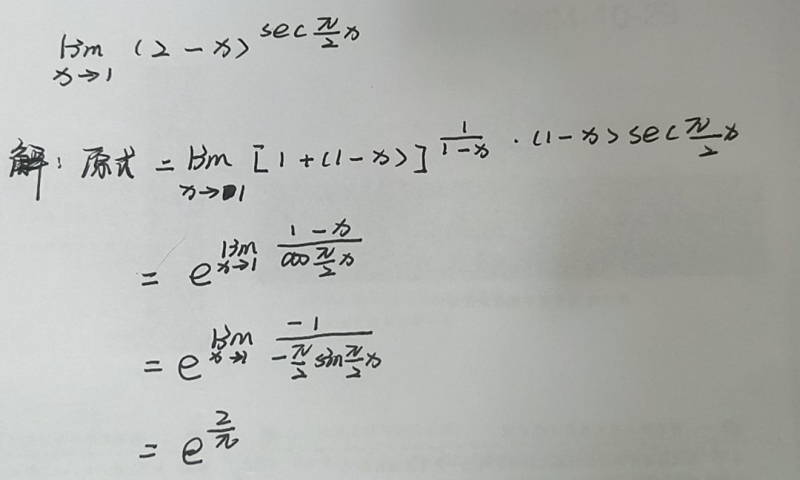 lim x→1 (2-x)^{sec π/2 x}
解：原式 = lim x→1 [1+(1-x)]^{1/(1-x) · (1-x) sec π/2 x}
= e^{lim x→1 (1-x)/(cos π/2 x)}
= e^{lim x→1 (-1)/(-π/2 sin π/2 x)}
= e^{2/π}